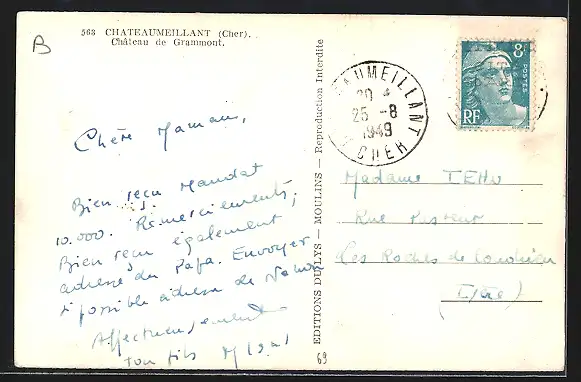 B
563 CHATEAUMEILLANT (Cher).
Château de Grammont.
Chère Maman,
Bien reçu Mandat
10.000. Remerciements,
Bien reçu également
adresse du Papa. Envoyer
si possible adresse de
Affectueusement
ton fils
69
EDITIONS DU LYS — MOULINS — Reproduction Interdite
CHATEAUMEILLANT
20
25 -8
1949
CHER
8F
POSTES
RF
Madame
Rue Pasteur
Les Roches de Condrieu
(Isère)